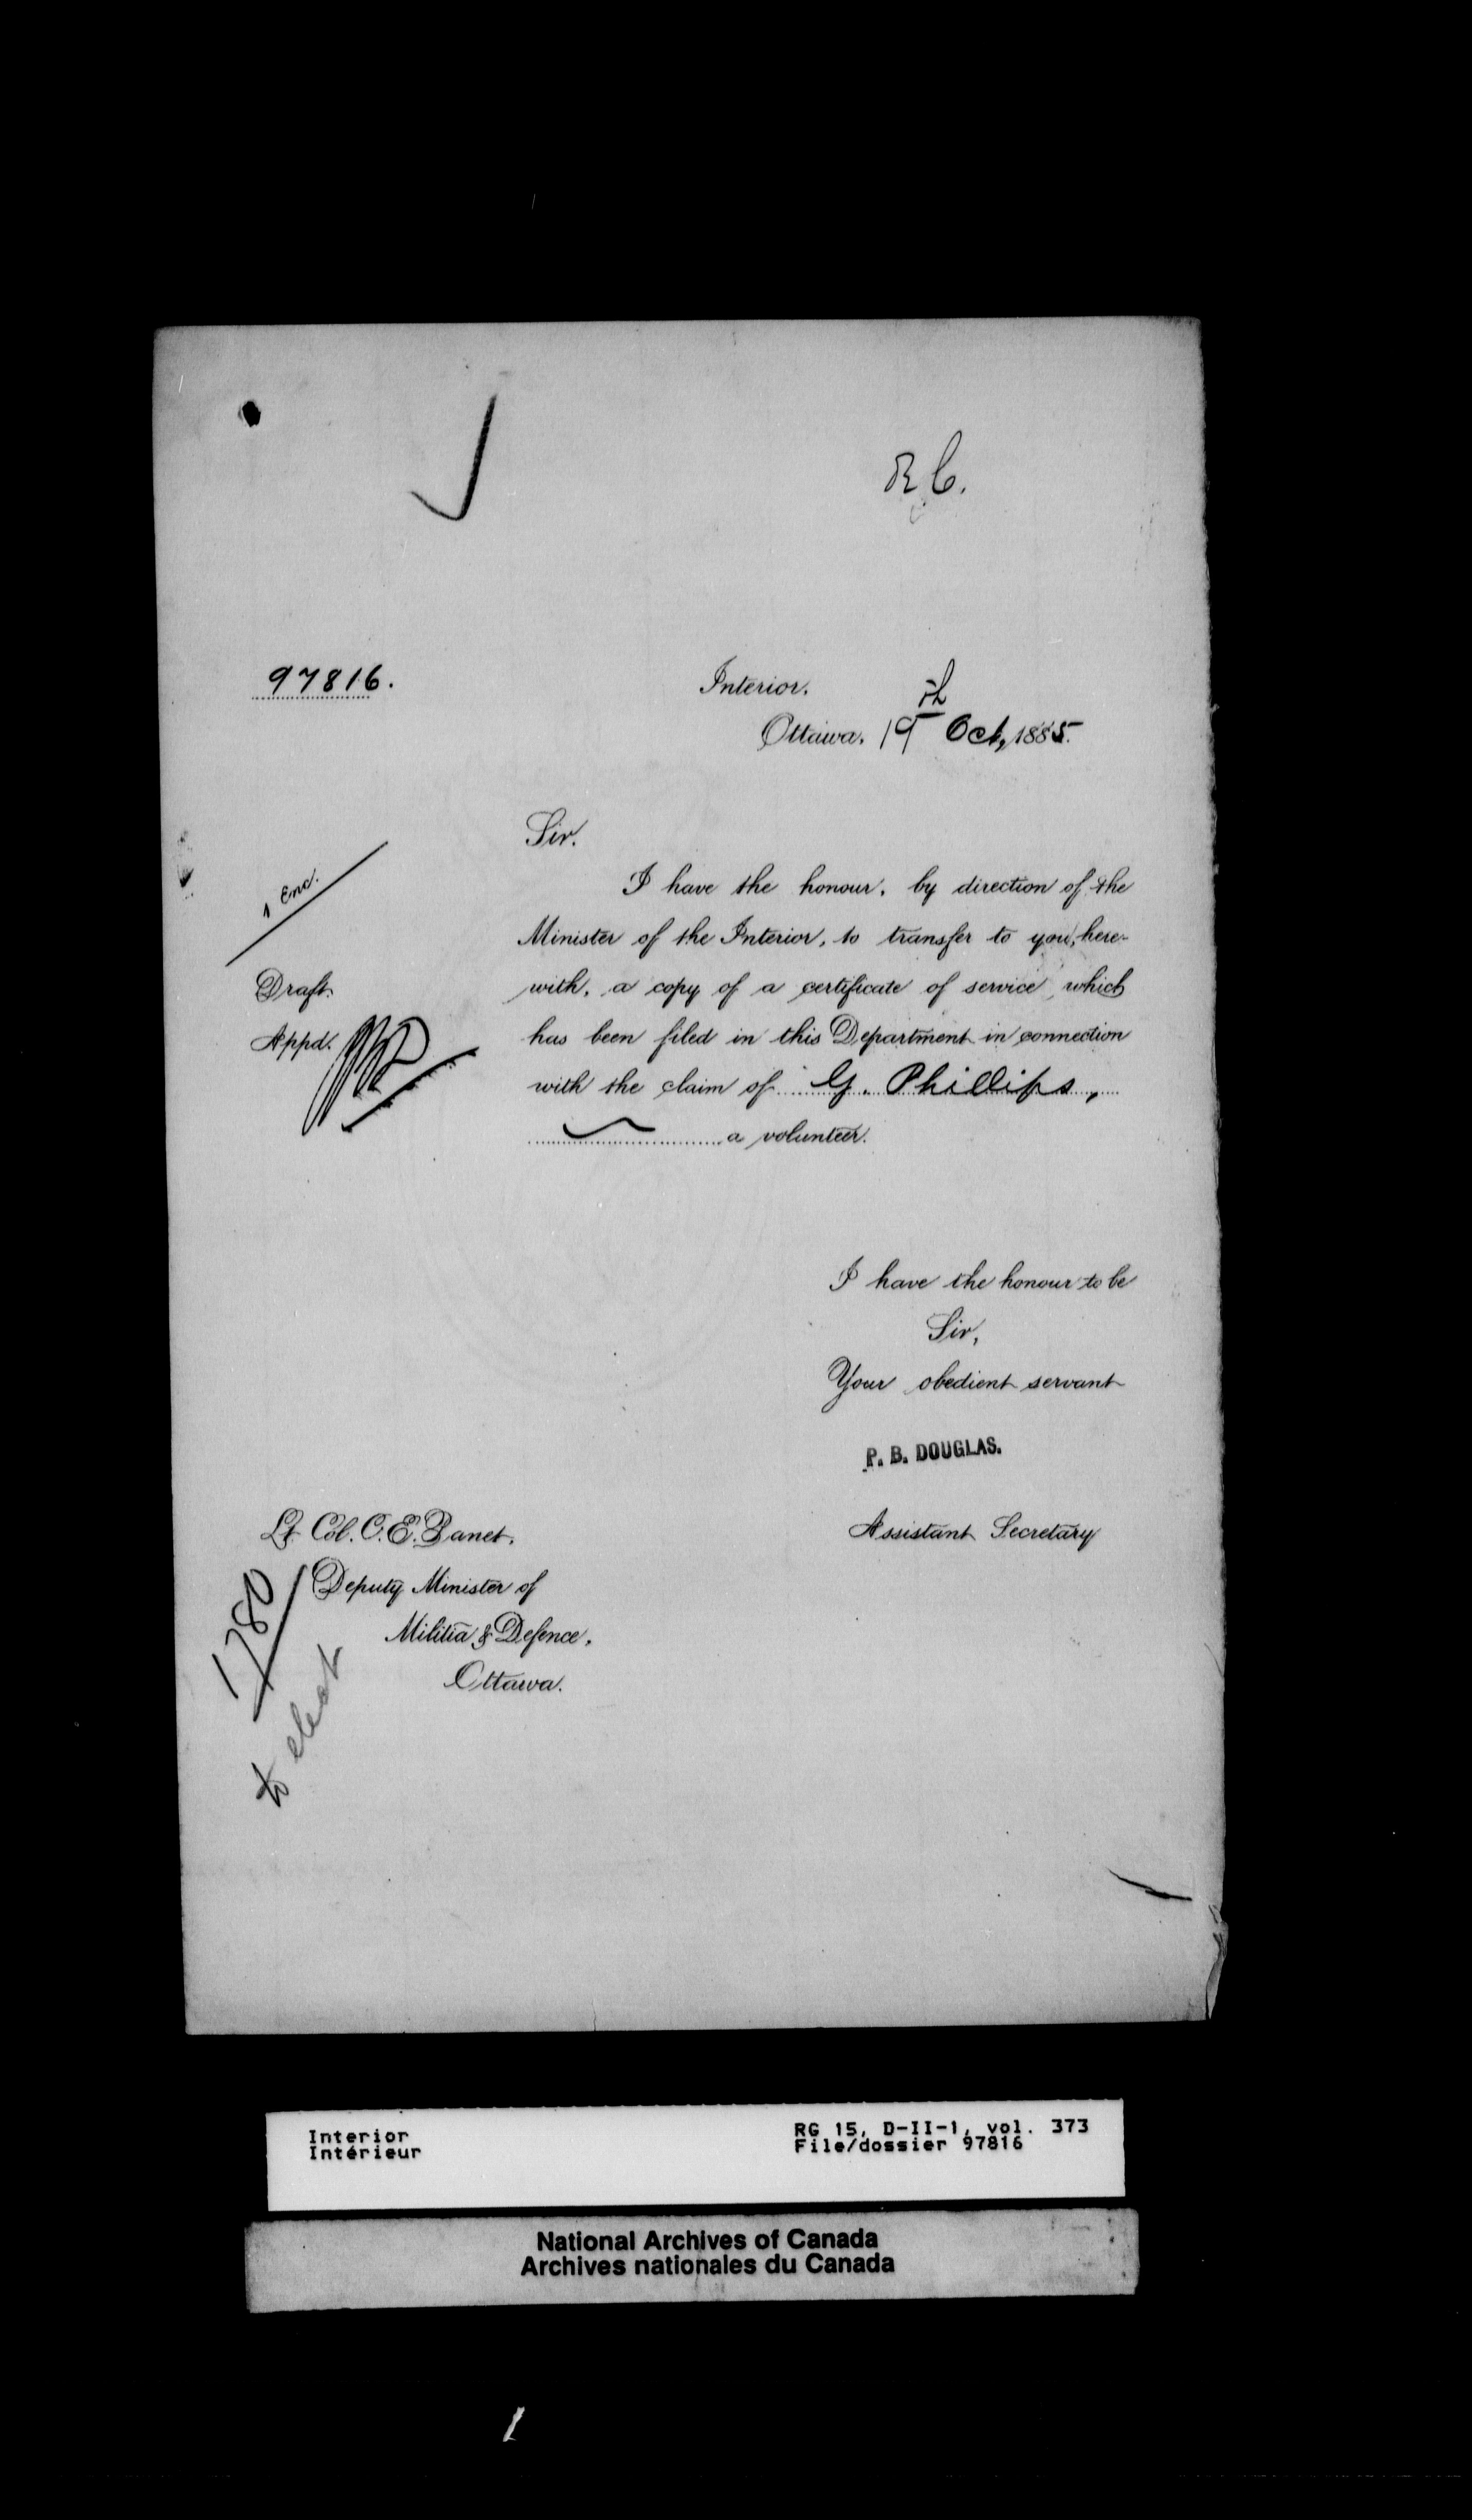 R.C.
97816.
Interior.
Ottawa, 19th Oct, 1885.
Sir.
1 Enc.
I have the honour, by direction of the
Minister of the Interior, to transfer to you, here-
with, a copy of a certificate of service which
has been filed in this Department in connection
with the claim of G. Phillips,
a volunteer.
Draft.
Appd.
I have the honour to be
Sir,
Your obedient servant
P. B. DOUGLAS.
Assistant Secretary
Lt. Col. C. E. Panet,
Deputy Minister of
Militia & Defence,
Ottawa.
1780
to elect
Interior
Intérieur
RG 15, D-II-1, vol. 373
File/dossier 97816
National Archives of Canada
Archives nationales du Canada